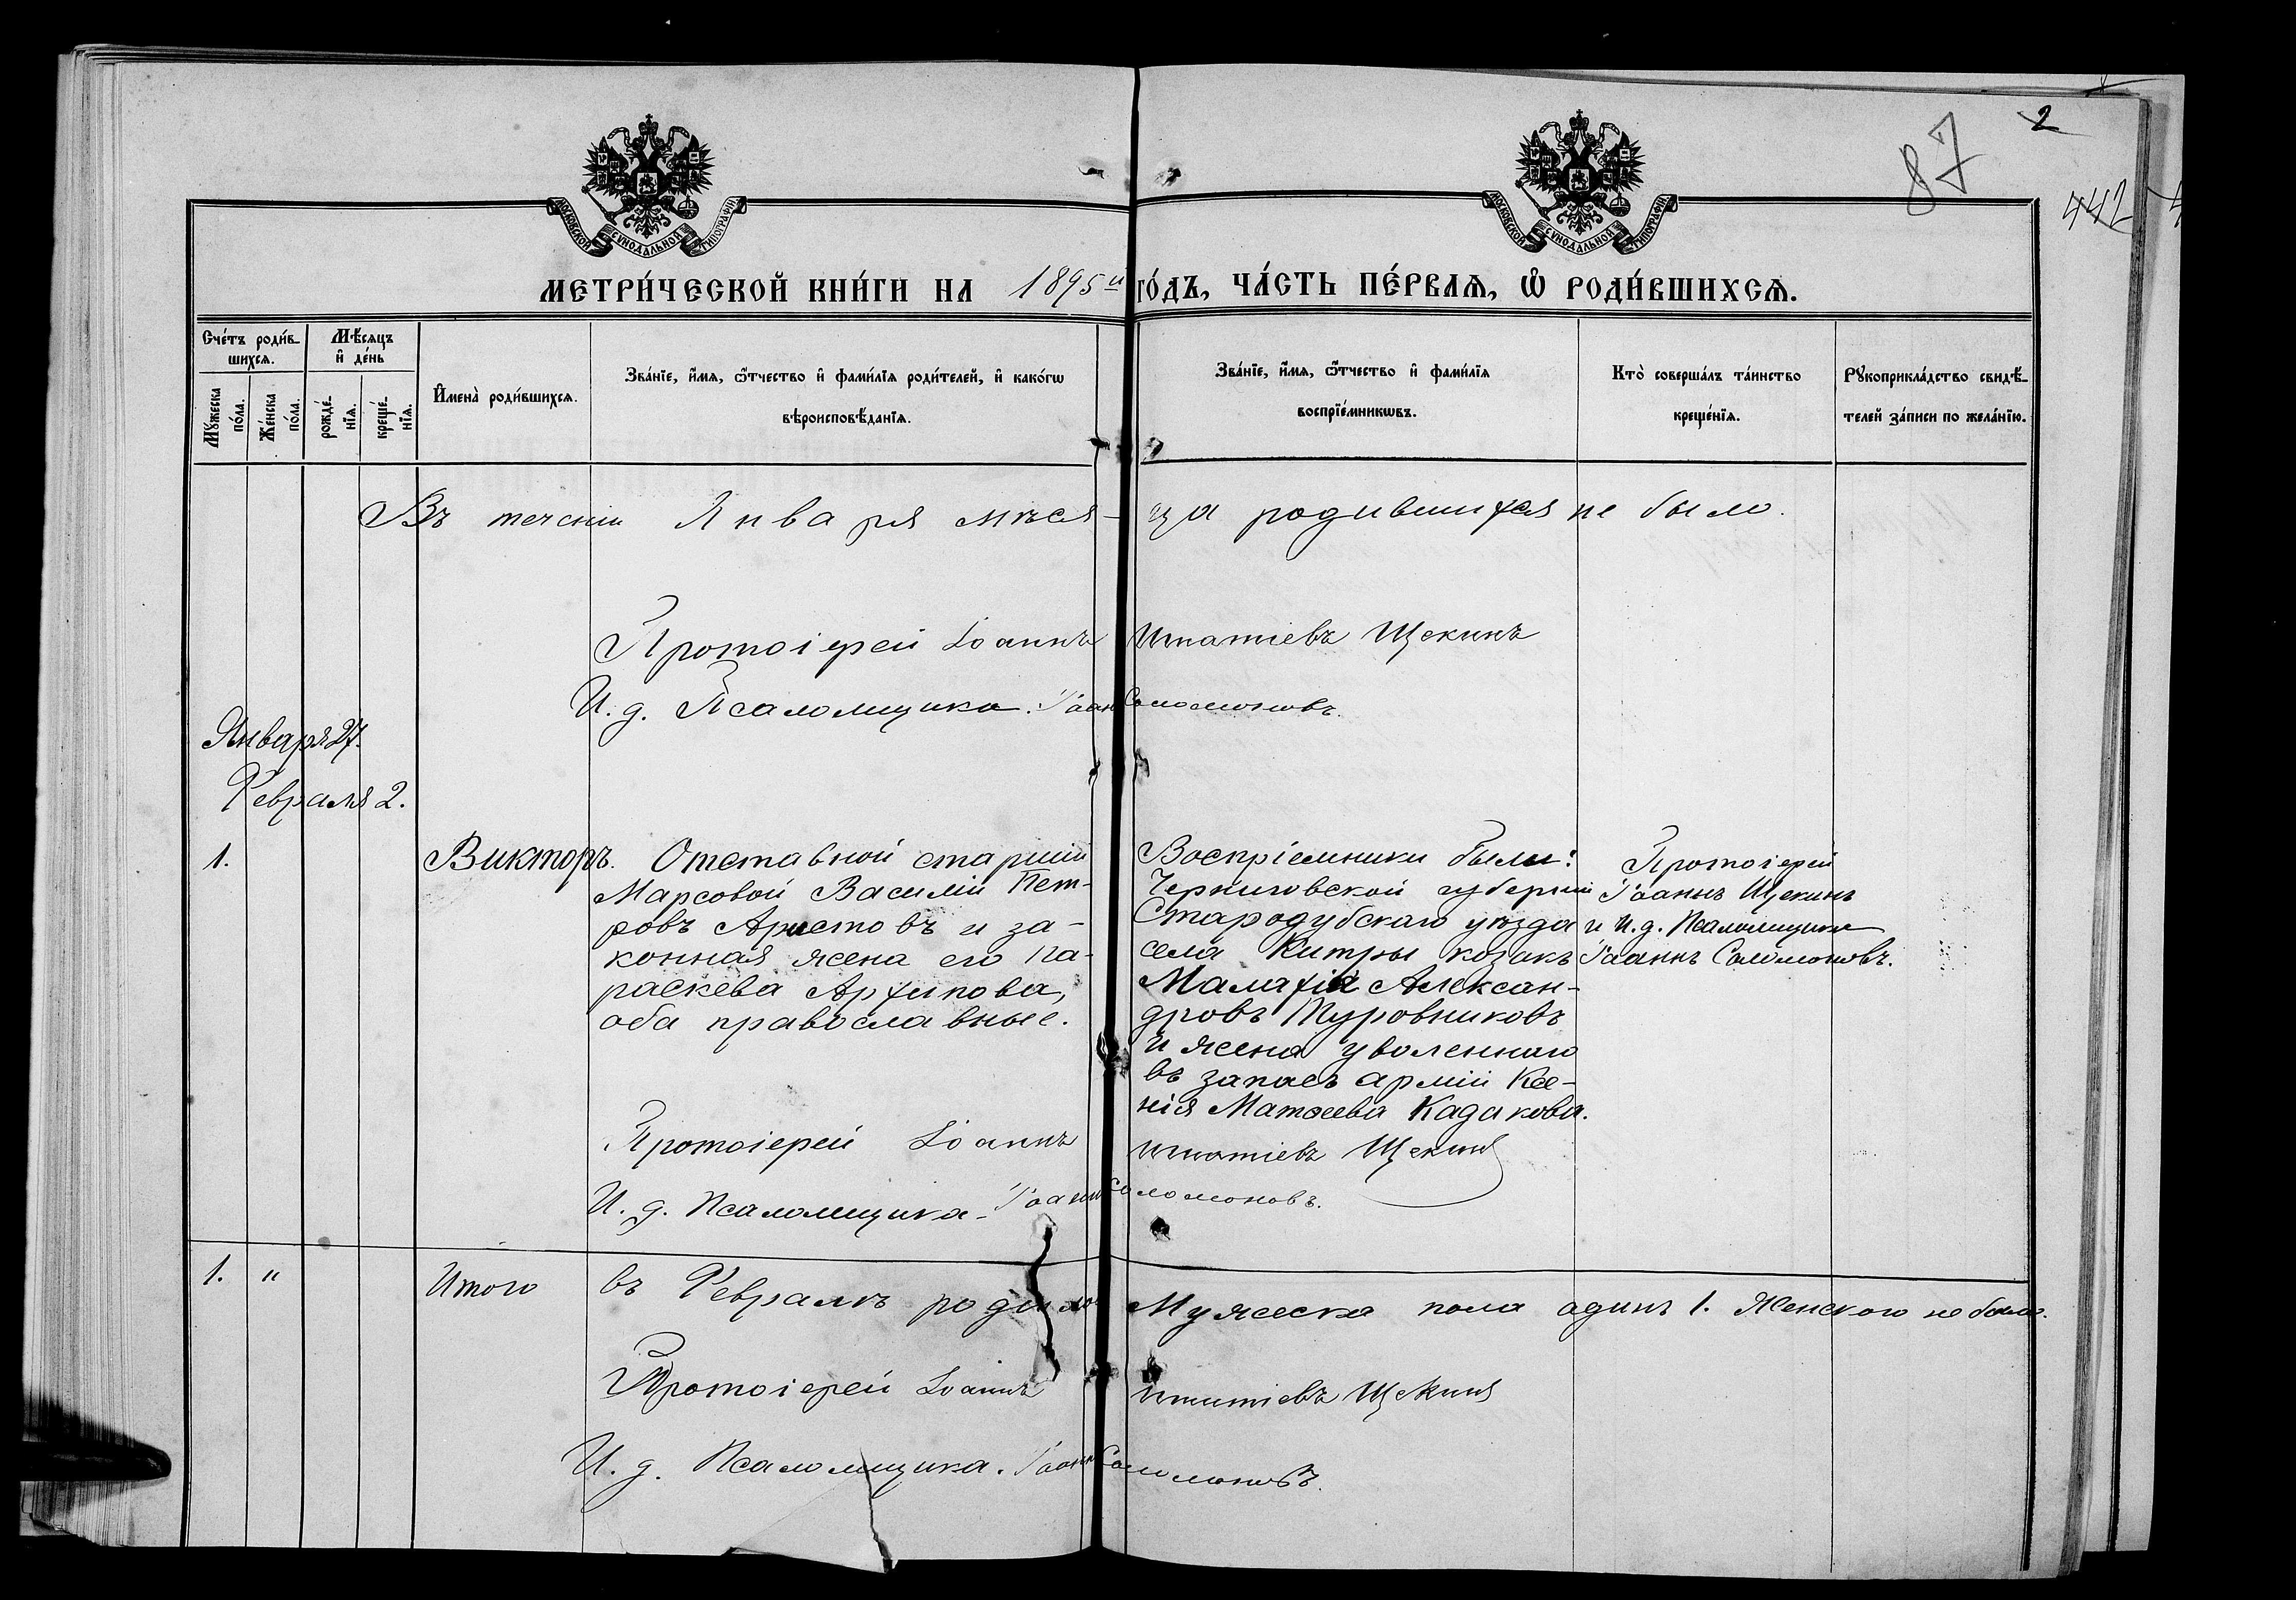 2
87
442
МОСКОВСКОЙ СѴНОДАЛЬНОЙ ТИПОГРАФІИ
МОСКОВСКОЙ СѴНОДАЛЬНОЙ ТИПОГРАФІИ
МЕТРИ́ЧЕСКОЙ КНИ́ГИ НА 1895й ГО́ДЪ, ЧА́СТЬ ПЕ́РВАѦ, Ѡ҆ РОДИ́ВШИХСѦ.
Сче́тъ роди́в-
шихсѧ.
Мѣ́сѧцъ
и҆ де́нь
Мꙋ́жеска
по́ла.
Же́нска
по́ла.
рожде́-
нїѧ.
креще́-
нїѧ.
И҆мена̀ роди́вшихсѧ.
Зва́нїе, и҆́мѧ, ѻ҆́тчество и҆ фами́лїѧ роди́телей, и҆ како́гѡ
вѣроисповѣ́данїѧ.
Зва́нїе, и҆́мѧ, ѻ҆́тчество и҆ фами́лїѧ
воспрїе́мникѡвъ.
Кто̀ соверша́лъ та́инство
креще́нїѧ.
Рꙋкоприкла́дство свидѣ́-
телей за́писи по жела́нїю.
Въ теченіи Января мѣся- ца родившихся не было.
Протоіерей Іоаннъ Игнатіевъ Щекинъ
И. д. Псаломщика. Іоаннъ Соломоновъ.
Января 27.
Февраля 2.
1.
Викторъ.
Отставной старшій
Марсовой Василій Пет-
ровъ Аристовъ и за-
конная жена его Па-
раскева Архипова,
оба православные.
Воспріемники были:
Черниговской губерніи
Стародубскаго уѣзда
села Китры козакъ
Малахій Алексан-
дровъ Туровниковъ
и жена уволеннаго
въ запасъ арміи Ксе-
нія Матѳеева Кадакова.
Протоіерей
Іоаннъ Щекинъ
и И. д. Псаломщика
Іоаннъ Соломоновъ.
Протоіерей Іоаннъ Игнатіевъ Щекинъ
И. д. Псаломщика. Іоаннъ Соломоновъ.
1. " Итого въ Февралѣ родилось Мужеска пола одинъ 1. Женского не было.
Протоіерей Іоаннъ Игнатіевъ Щекинъ
И. д. Псаломщика. Іоаннъ Соломоновъ.